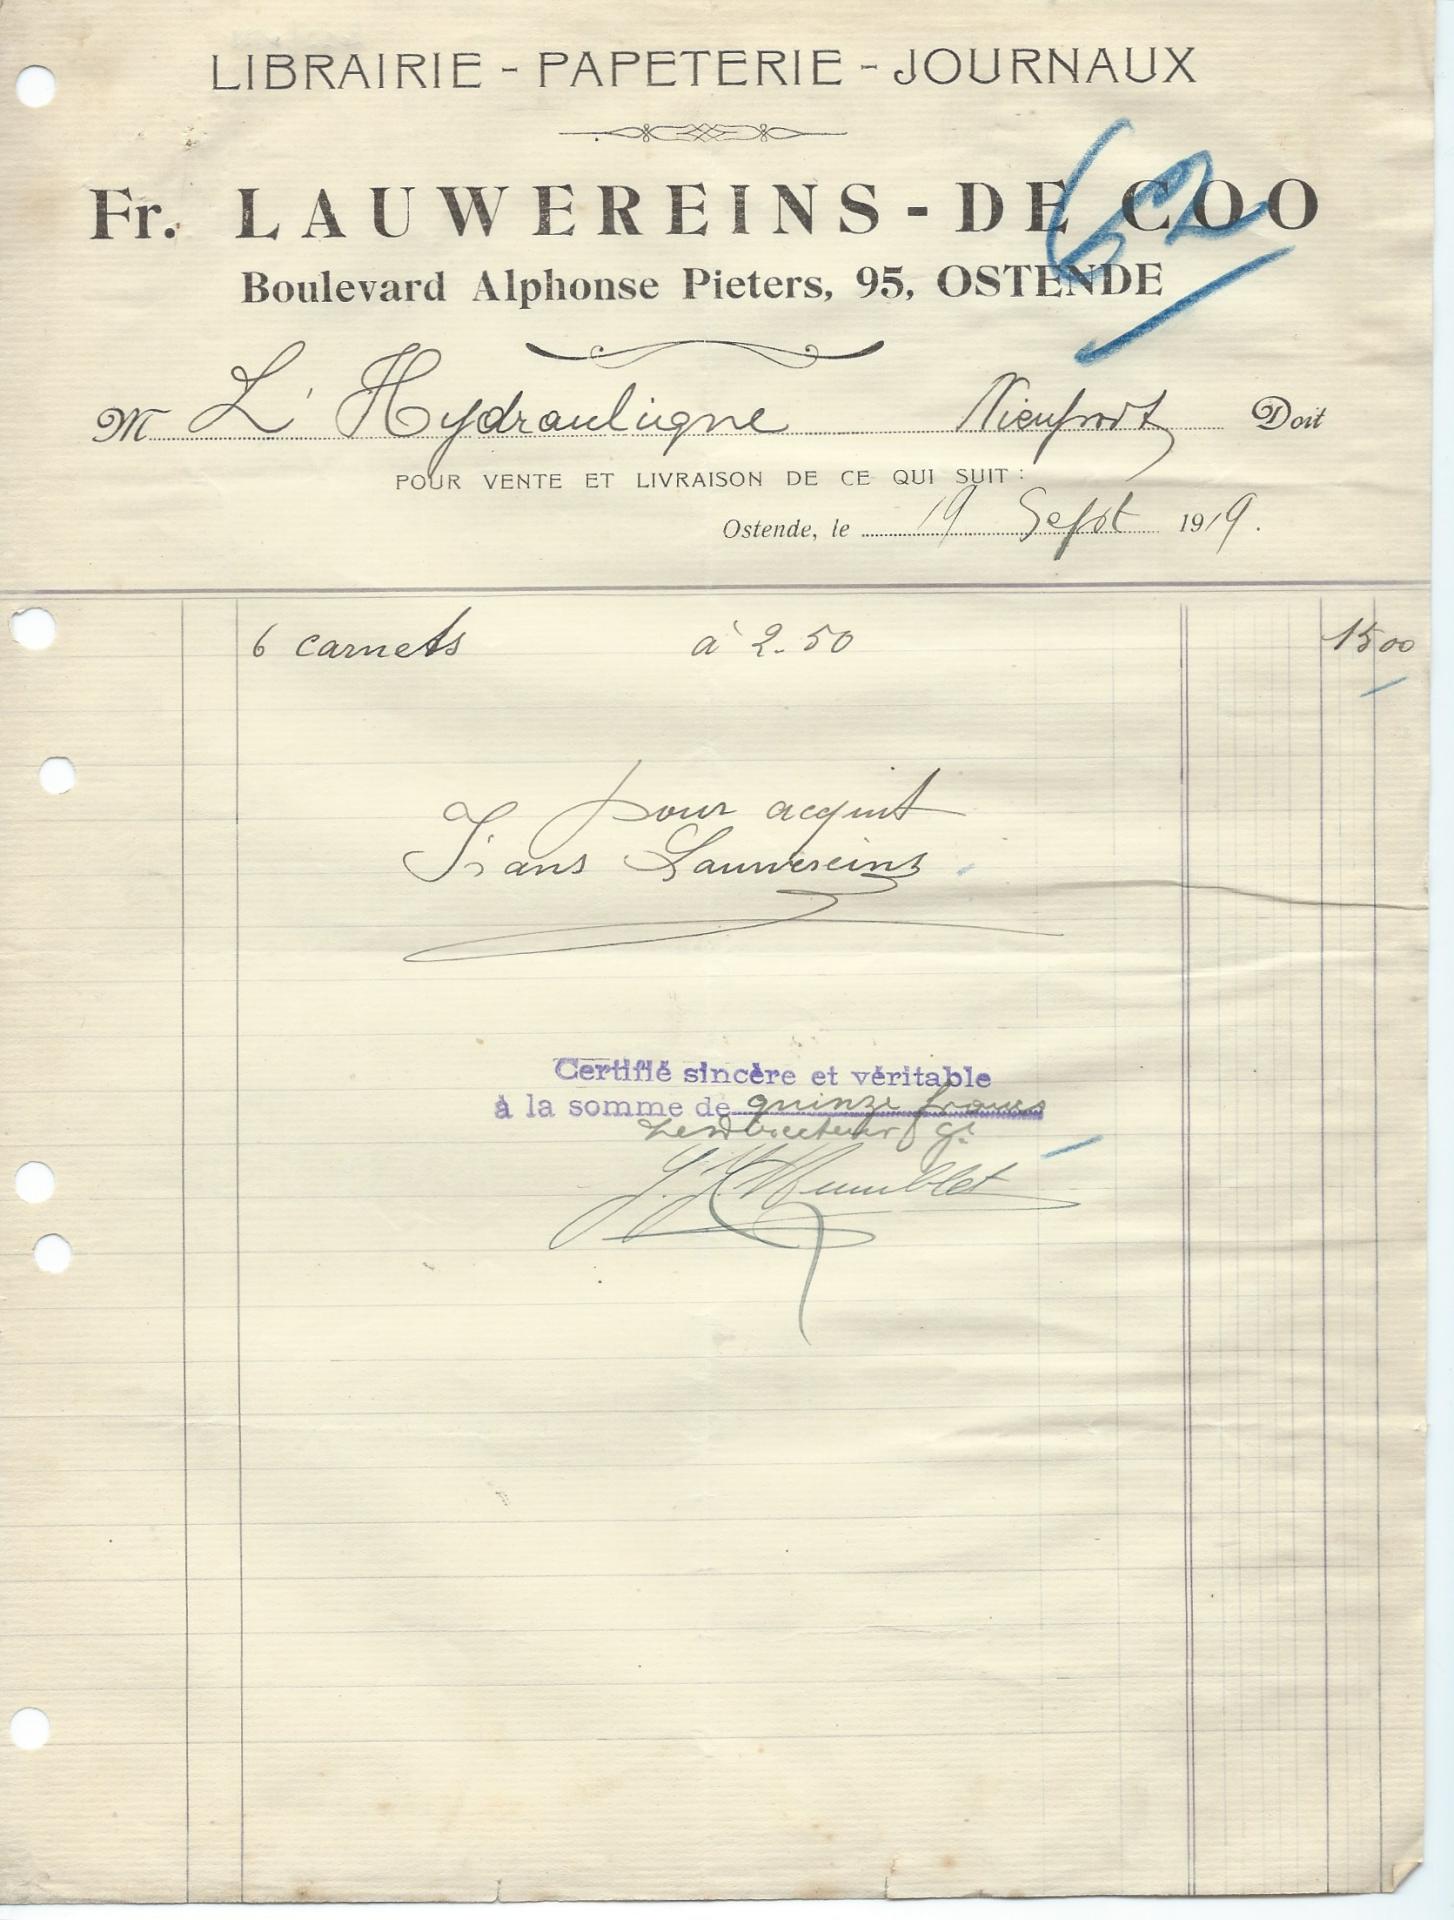 LIBRAIRIE - PAPETERIE - JOURNAUX
Fr. LAUWEREINS - DE COO
62
Boulevard Alphonse Pieters, 95, OSTENDE
M L'Hydraulique Nieuport Doit
POUR VENTE ET LIVRAISON DE CE QUI SUIT :
Ostende, le 19 Sept 1919.
6 carnets à 2.50 15 00
pour acquit
Frans Lauwereins
Certifié sincère et véritable
à la somme de quinze francs
Le Directeur gt
J. J. Humblet